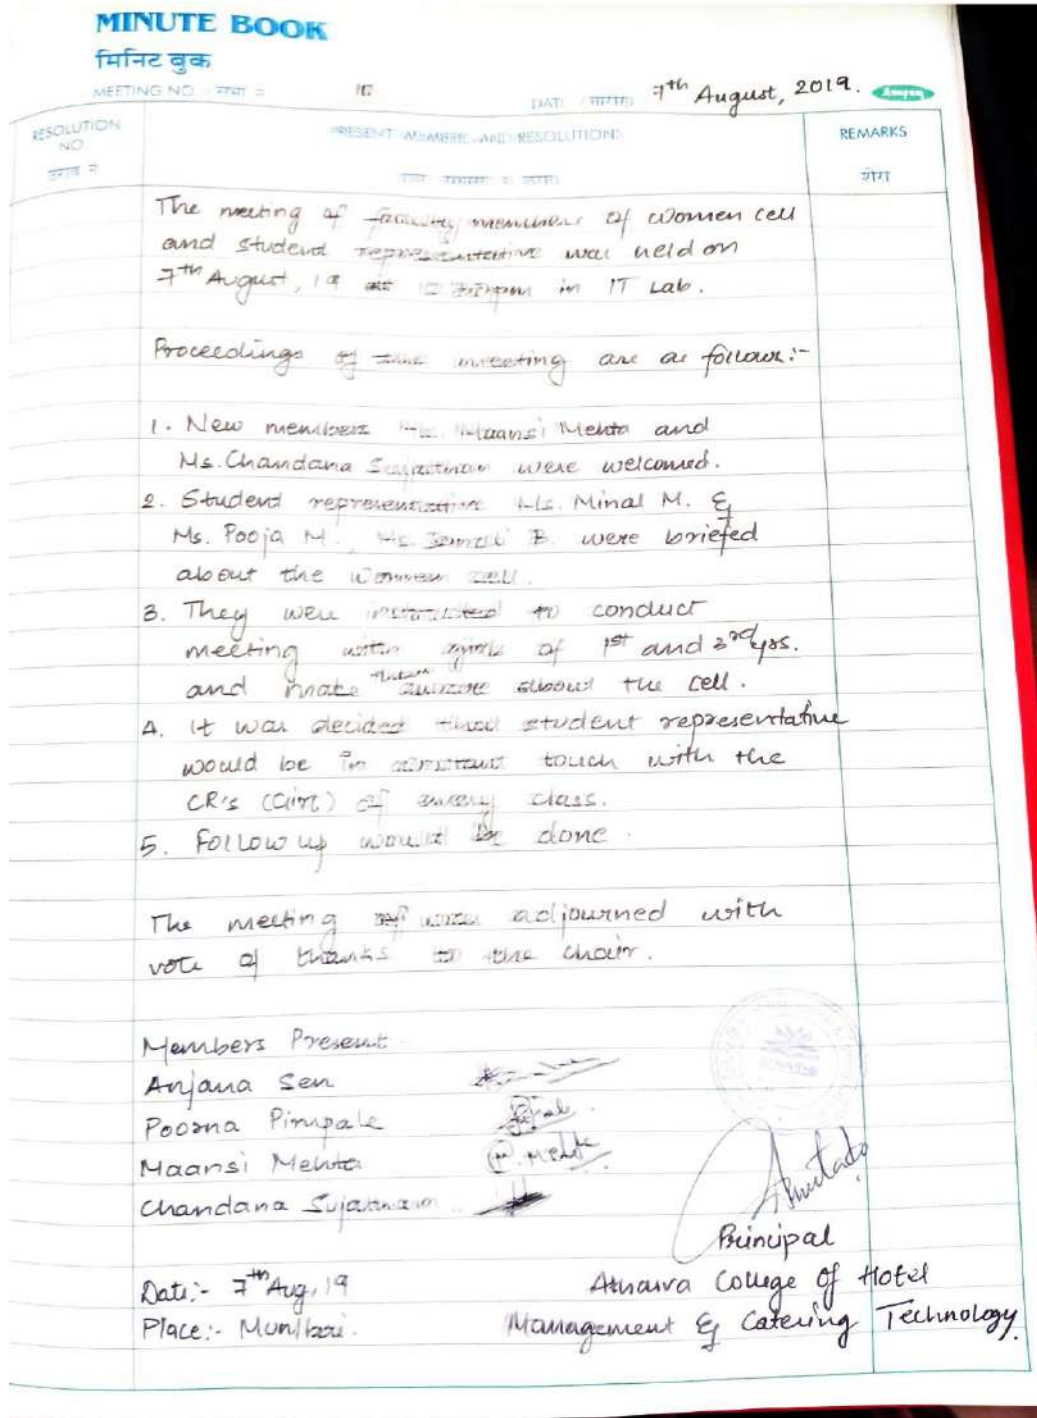 MINUTE BOOK
मिनिट बुक
MEETING NO / सभा नं
DATE / तारीख 7th August, 2019.
RESOLUTION NO
ठराव नं
PRESENT MEMBERS AND RESOLUTIONS
REMARKS
शेरा
The meeting of faculty members of women cell
and student representative was held on
7th August, 19 at in IT Lab.
Proceedings of the meeting are as follows:-
1. New members Ms. Maansi Mehta and
Ms. Chandana were welcomed.
2. Student representative Ms. Minal M. &
Ms. Pooja M., Ms. B. were briefed
about the women cell.
3. They were instructed to conduct
meeting with girls of 1st and 3rd yrs.
and make them aware about the cell.
4. It was decided that student representative
would be in constant touch with the
CR's (Girl) of every class.
5. Follow up would be done.
The meeting was adjourned with
vote of thanks to the chair.
Members Present
Anjana Sen
Poorna Pimpale
Maansi Mehta M. Mehta
Chandana
Principal
Date:- 7th Aug, 19 Atharva College of Hotel
Place:- Mumbai. Management & Catering Technology.